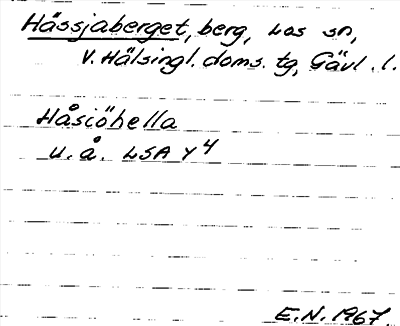 Hässjaberget, berg, Los sn,
V. Hälsingl. doms. tg, Gävl. l.
Håsiöhella
u. å. LSA Y 4
E.N. 1967